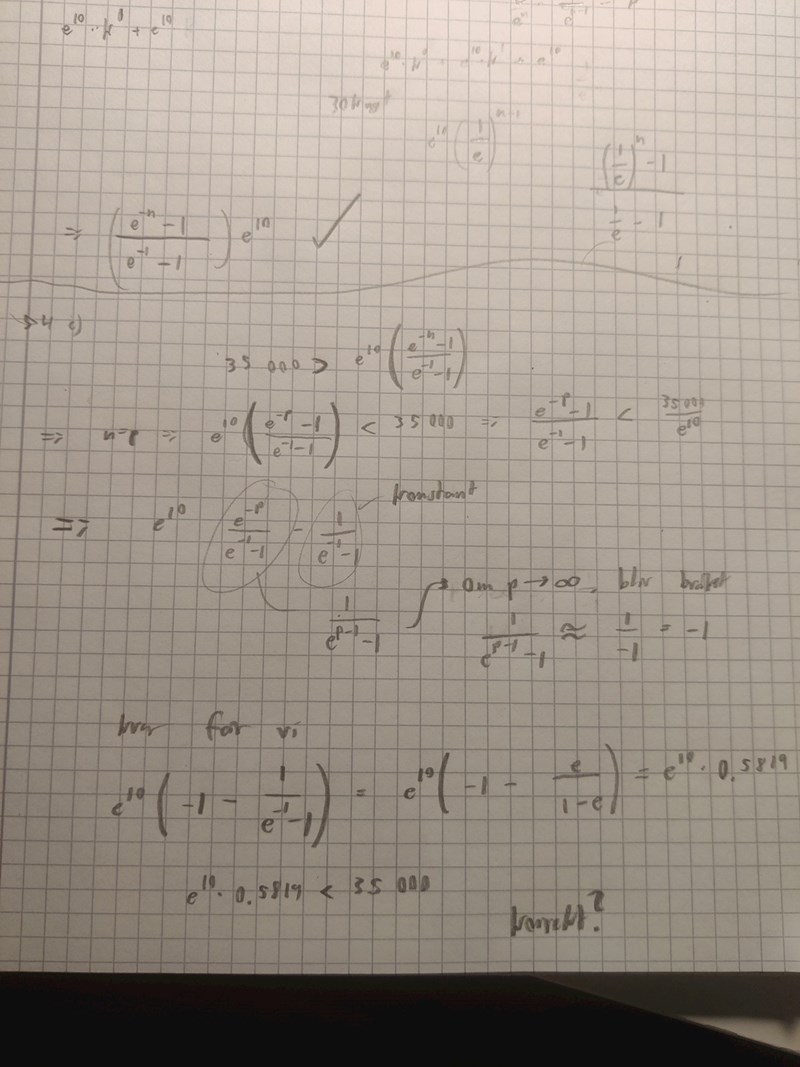 e^10 · k^p + e^10
e^10 (1/e)^(n-1)
((1/e)^n - 1) / (1/e - 1)
= ((e^-n - 1)/(e^-1 - 1)) e^10 ✓
35 000 > e^10 ((e^-n - 1)/(e^-1 - 1))
e^10 ((e^-p - 1)/(e^-1 - 1)) < 35 000 = (e^-p - 1)/(e^-1 - 1) < 35 000/e^10
e^10 (e^-p)/(e^-1 - 1) - 1/(e^-1 - 1) konstant
1/(e^(p-1) - 1) Om p → ∞ blir bråket
1/(e^(p-1) - 1) ≈ 1/-1 = -1
får vi
e^10 (-1 - 1/(e^-1 - 1)) = e^10 (-1 - e/(1-e)) = e^10 · 0.5819
e^10 · 0.5819 < 35 000
korrekt?